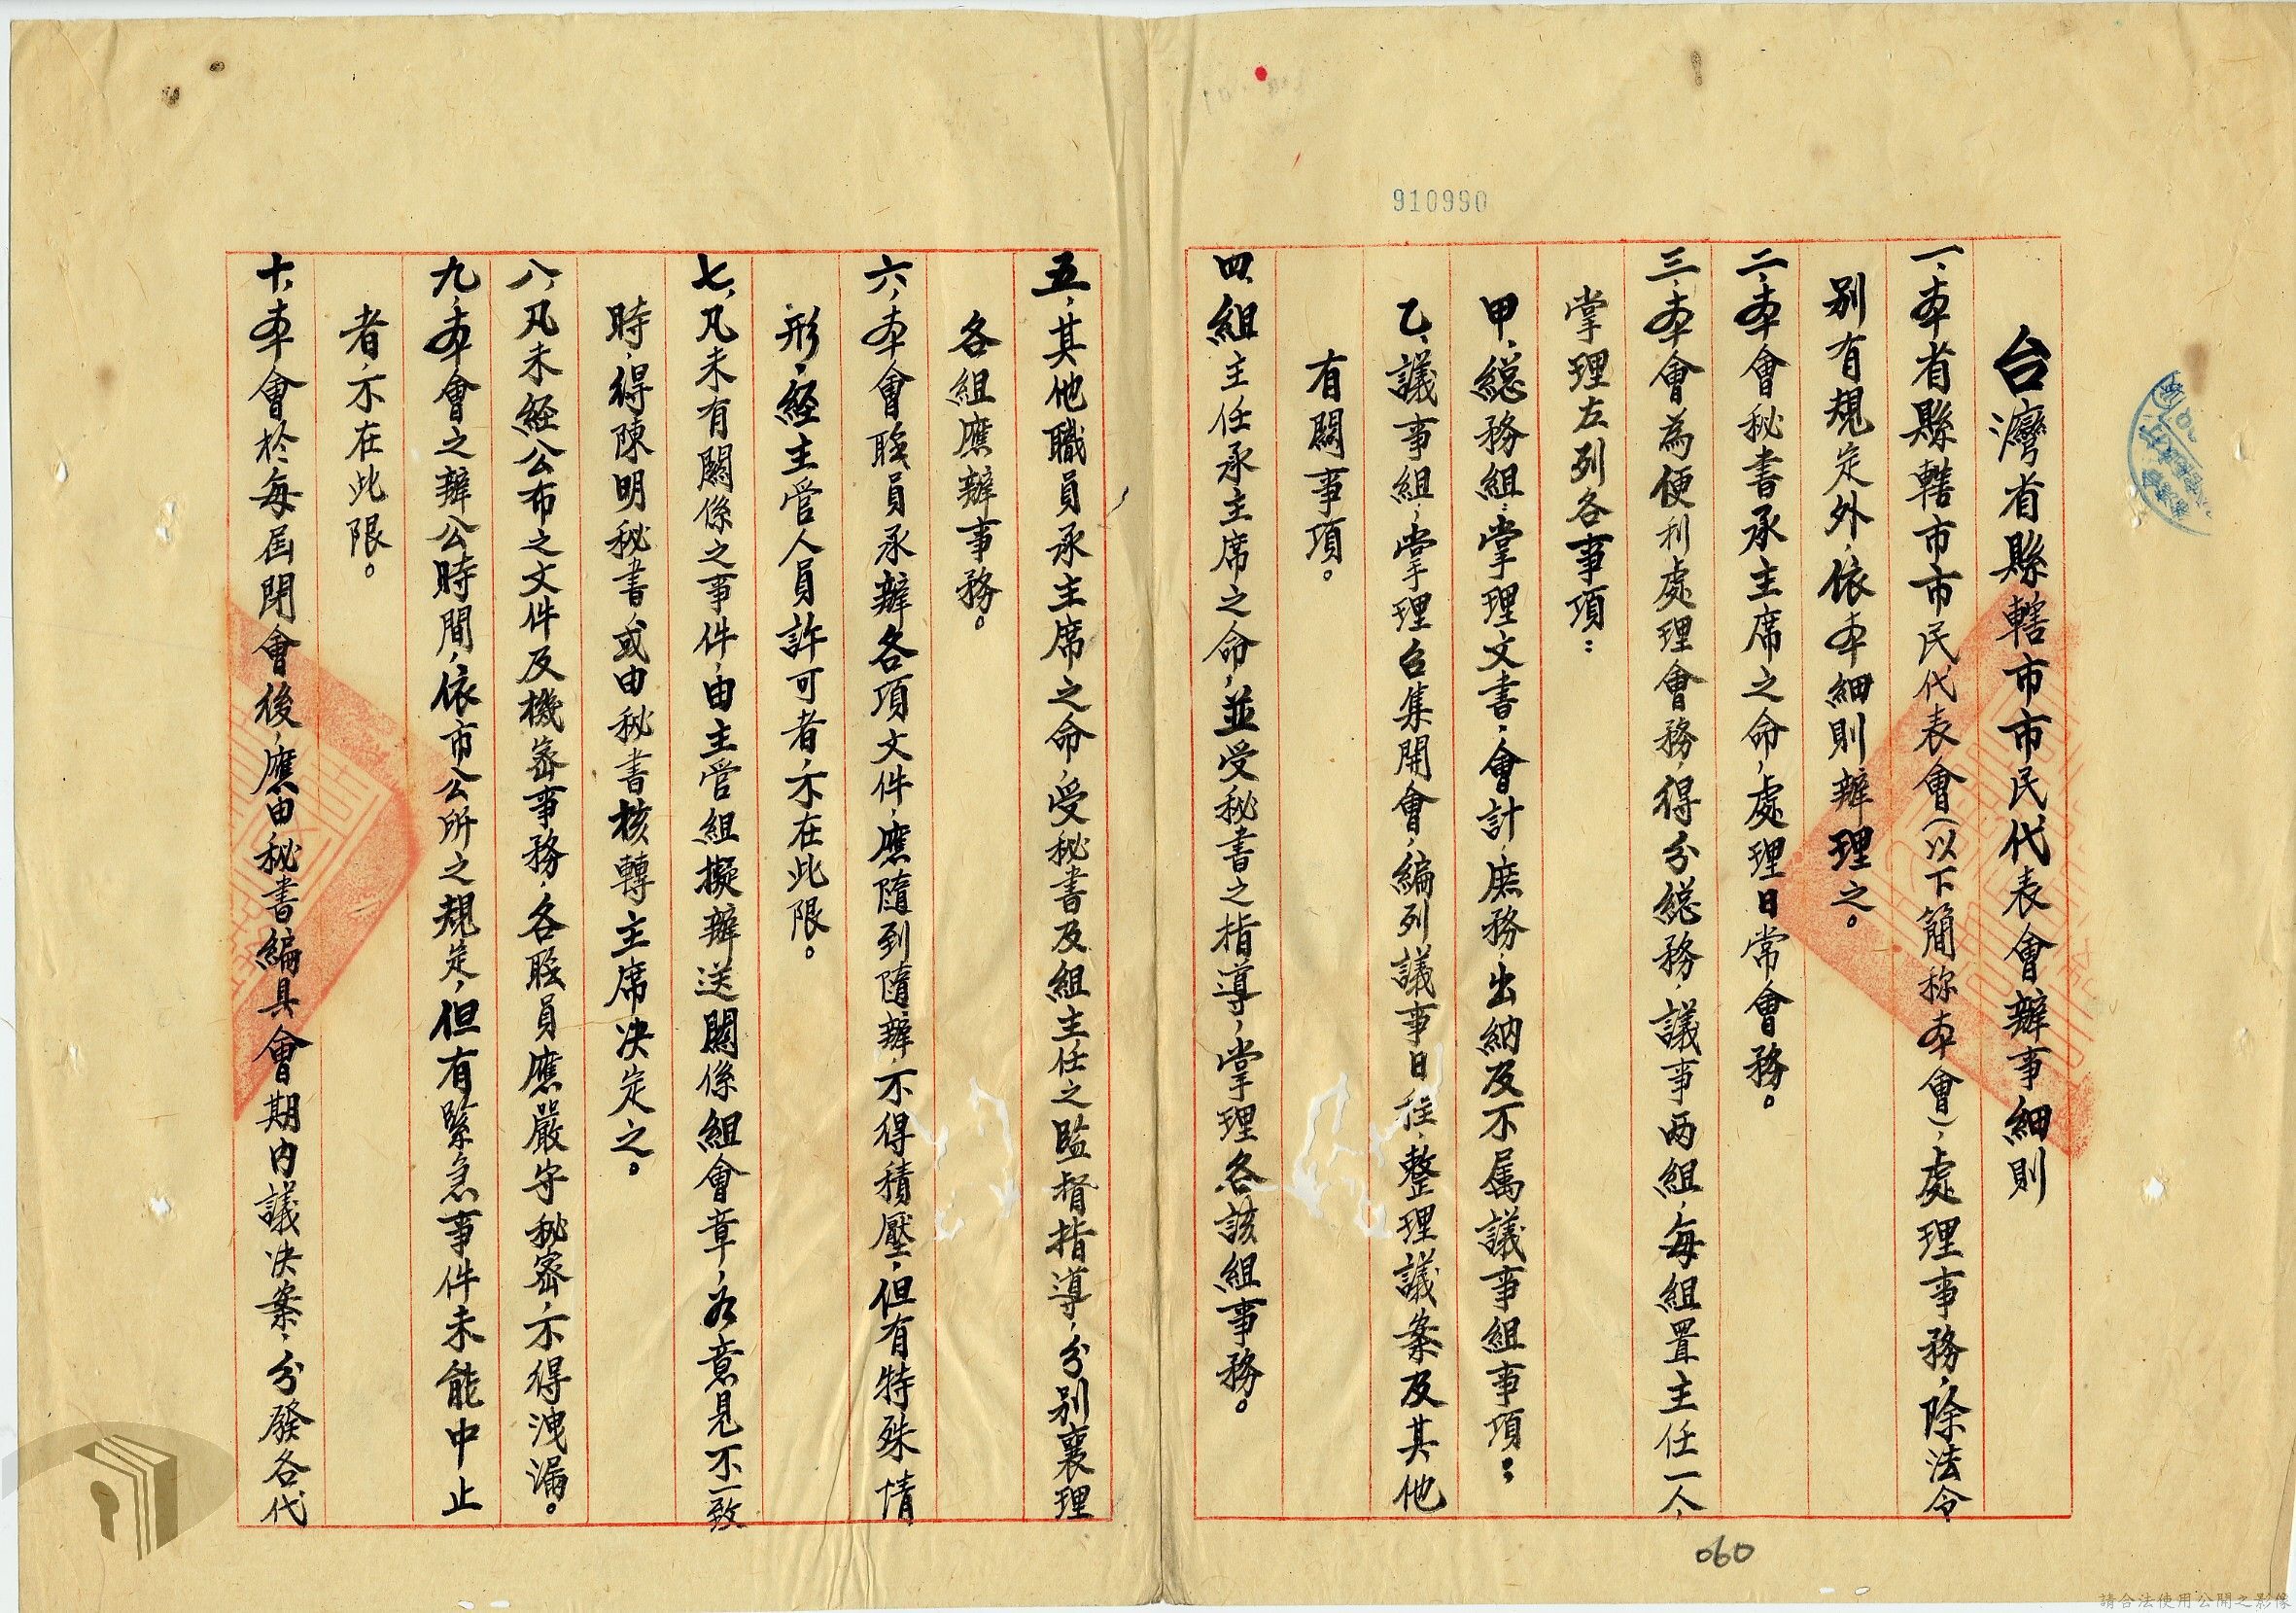 910990
台灣省縣轄市市民代表會辦事細則
一、本省縣轄市市民代表會（以下簡称本會），處理事務，除法令
別有規定外，依本細則辦理之。
二、本會秘書承主席之命，處理日常會務。
三、本會為便利處理會務，得分総務，議事兩組，每組置主任一人，
掌理左列各事項：
甲、総務組，掌理文書，會計，庶務，出納及不属議事組事項：
乙、議事組，掌理召集開會，編列議事日程，整理議案及其他
有関事項。
四、組主任承主席之命，並受秘書之指導，掌理各該組事務。
五、其他職員承主席之命，受秘書及組主任之監督指導，分别襄理
各組應辦事務。
六、本會職員承辦各項文件，應隨到隨辦，不得積壓，但有特殊情
形，経主管人員許可者，不在此限。
七、凡未有関係之事件，由主管組擬辦送関係組會章，如意見不一致
時，得陳明秘書，或由秘書核轉主席决定之。
八、凡未經公布之文件及機密事務，各職員應嚴守秘密，不得洩漏。
九、本會之辦公時間，依市公所之規定，但有緊急事件未能中止
者，不在此限。
十、本會於每屆閉會後，應由秘書編具會期内議决案，分發各代
060
請合法使用公開之影像